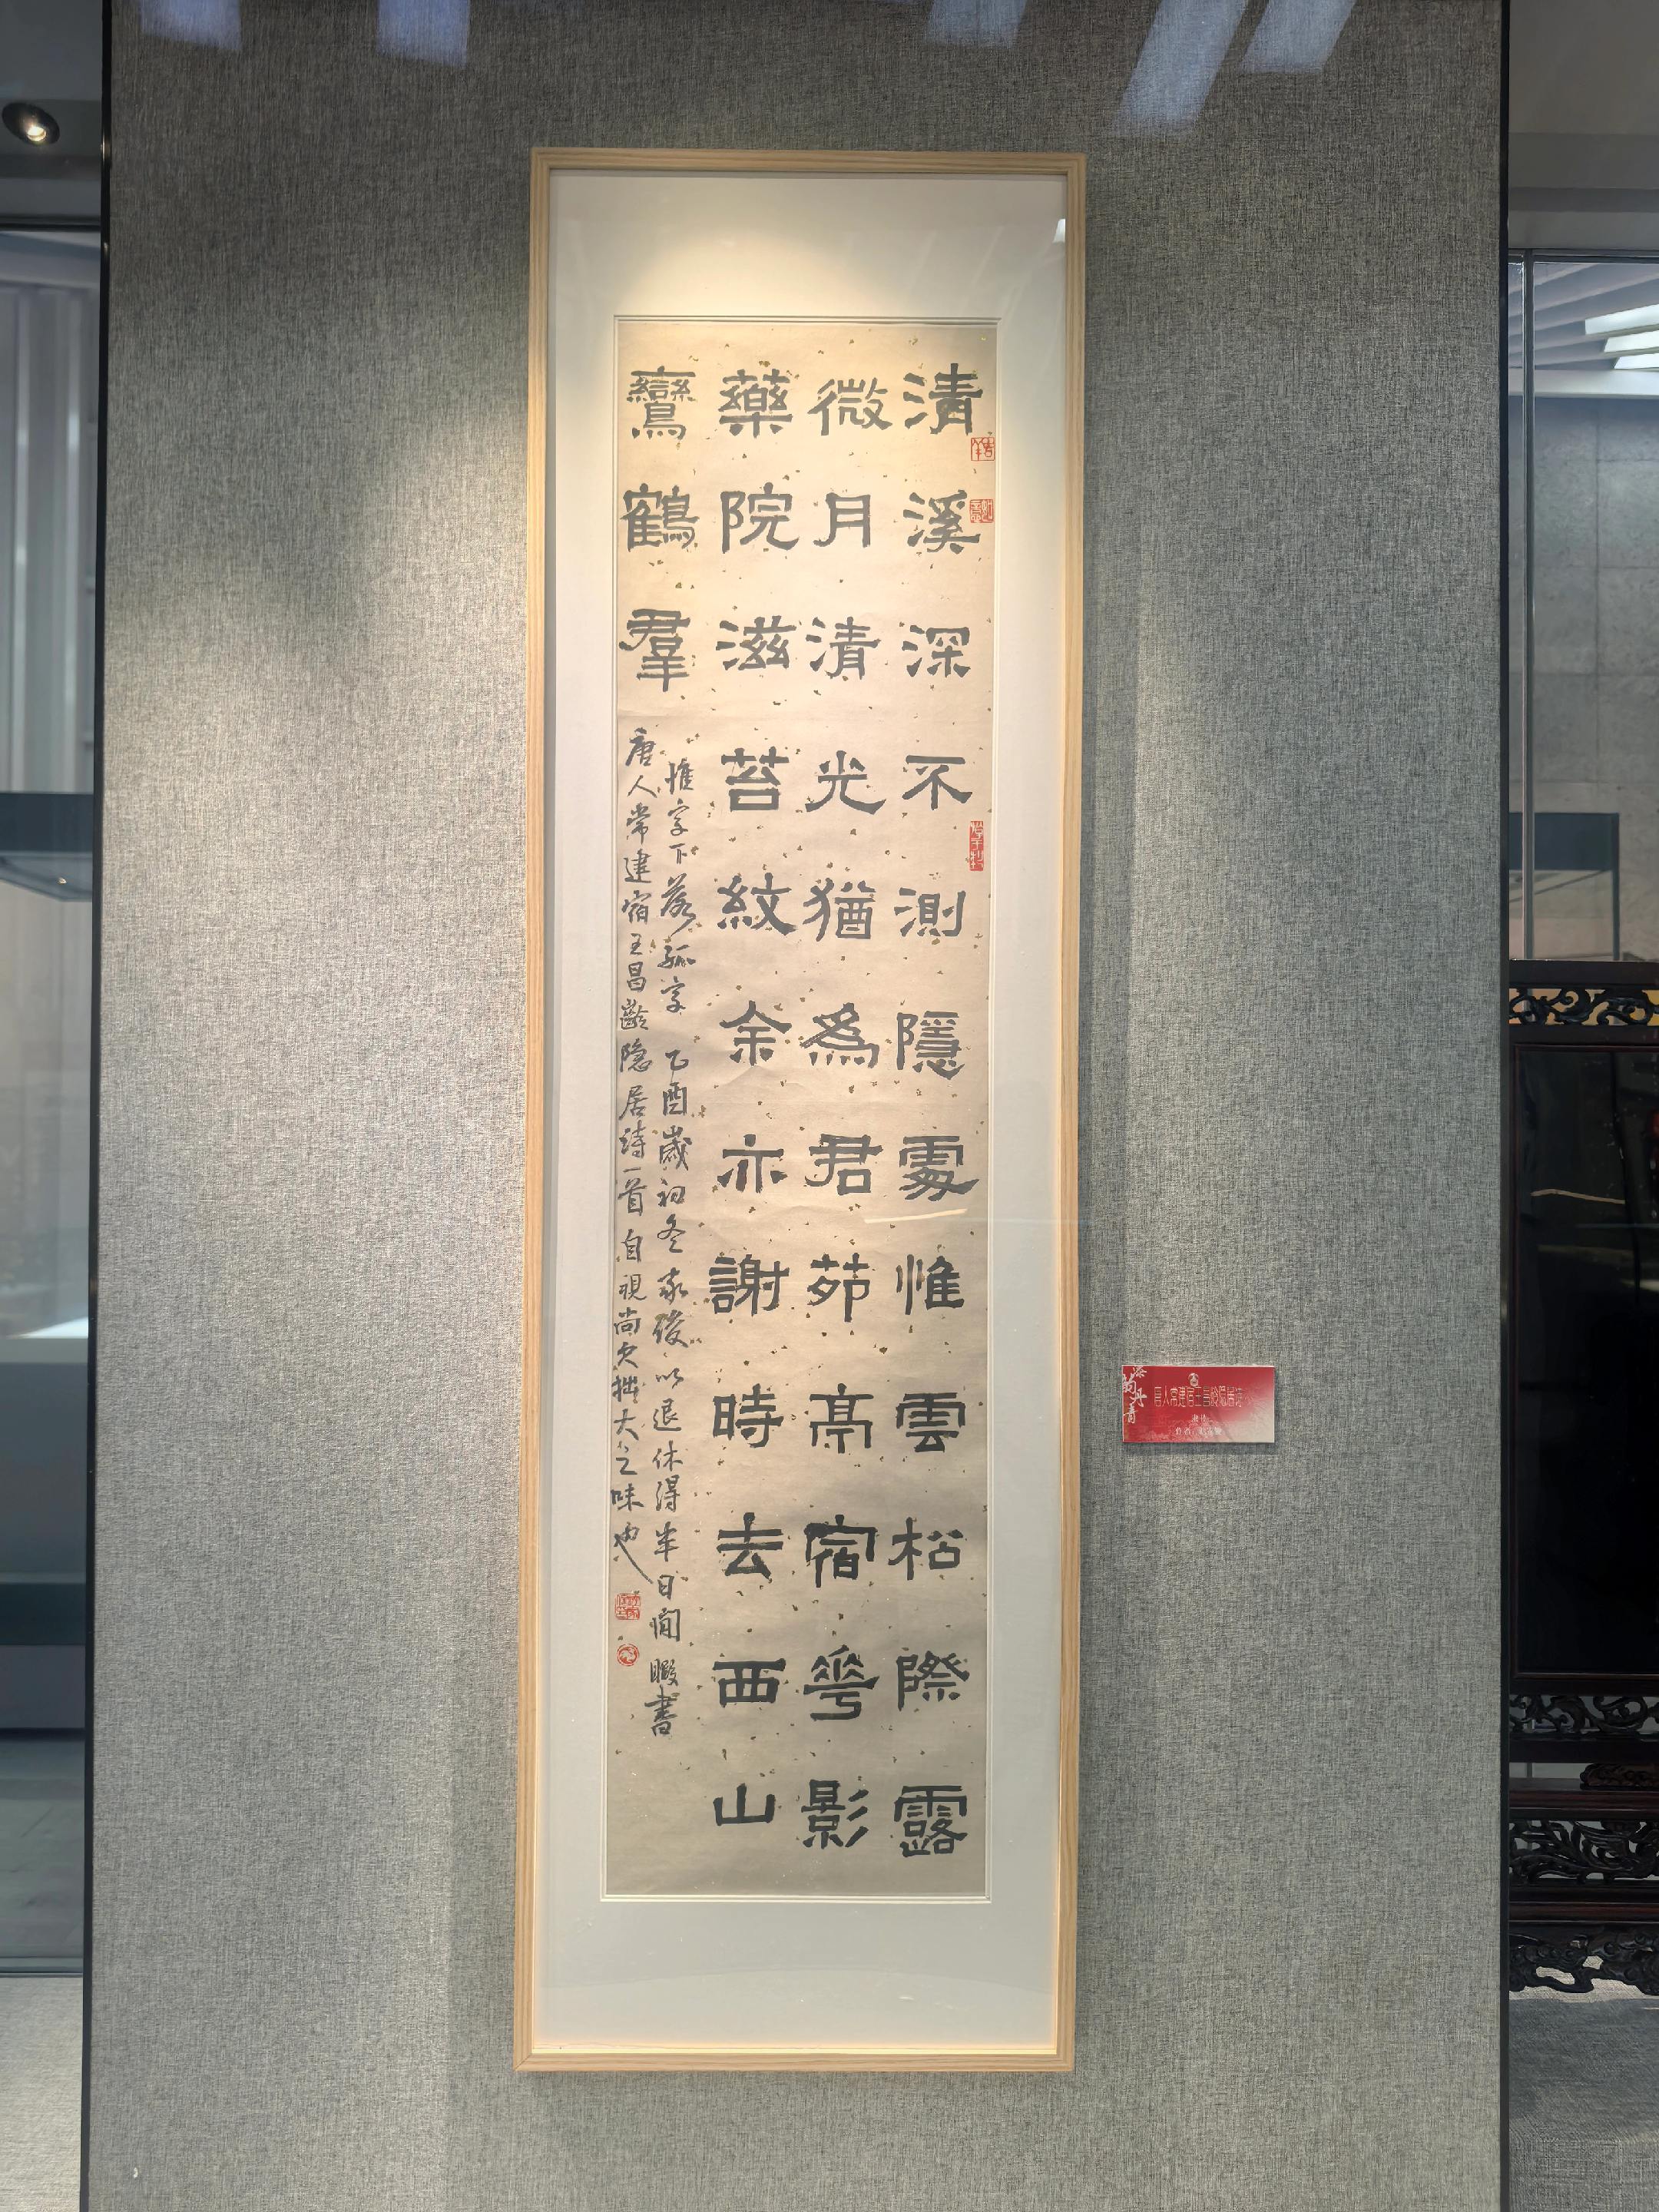 清溪深不測隱處惟雲松際露
微月清光猶爲君茆亭宿花影
藥院滋苔紋余亦謝時去西山
鸞鶴羣
惟字下落孤字 乙酉歲初冬 家俊以退休得半日閒暇書
唐人常建宿王昌齡隐居詩一首自視尚欠拙大之味也
唐人常建宿王昌龄隐居诗